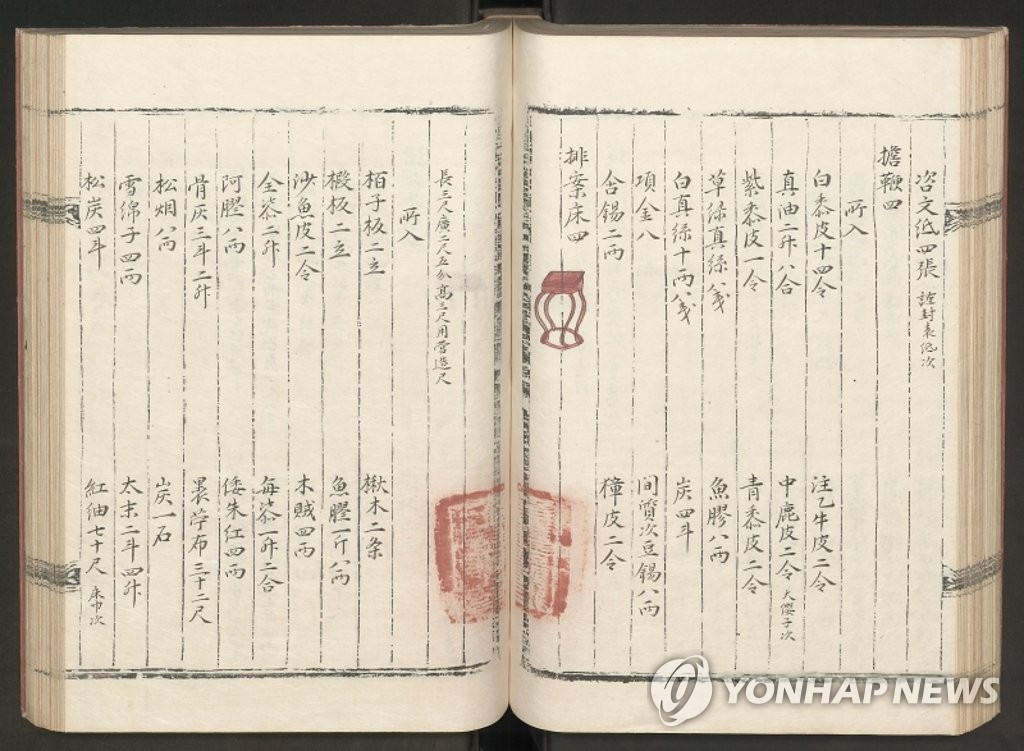 咨文紙四張 誼封表紙次
擔鞭四
所入
白黍皮十四令 注乙牛皮二令
真油二升八合 中鹿皮二令 大纓子次
紫黍皮一令 青黍皮二令
草綠真絲八戔 魚膠八兩
白真絲十兩八戔 炭四斗
項金八 間質次豆錫八兩
含錫二兩 獐皮二令
排案床四
長三尺廣二尺五分高三尺用營造尺
所入
栢子板二立 楸木二条
椴板二立 魚膠一斤八兩
沙魚皮二令 木賊四兩
全柒二升 每柒一升二合
阿膠八兩 倭朱紅四兩
骨灰三斗二升 褁苧布三十二尺
松烟八兩 炭一石
雪綿子四兩 太末二斗四升
松炭四斗 紅紬七十尺 床巾次
YONHAP NEWS